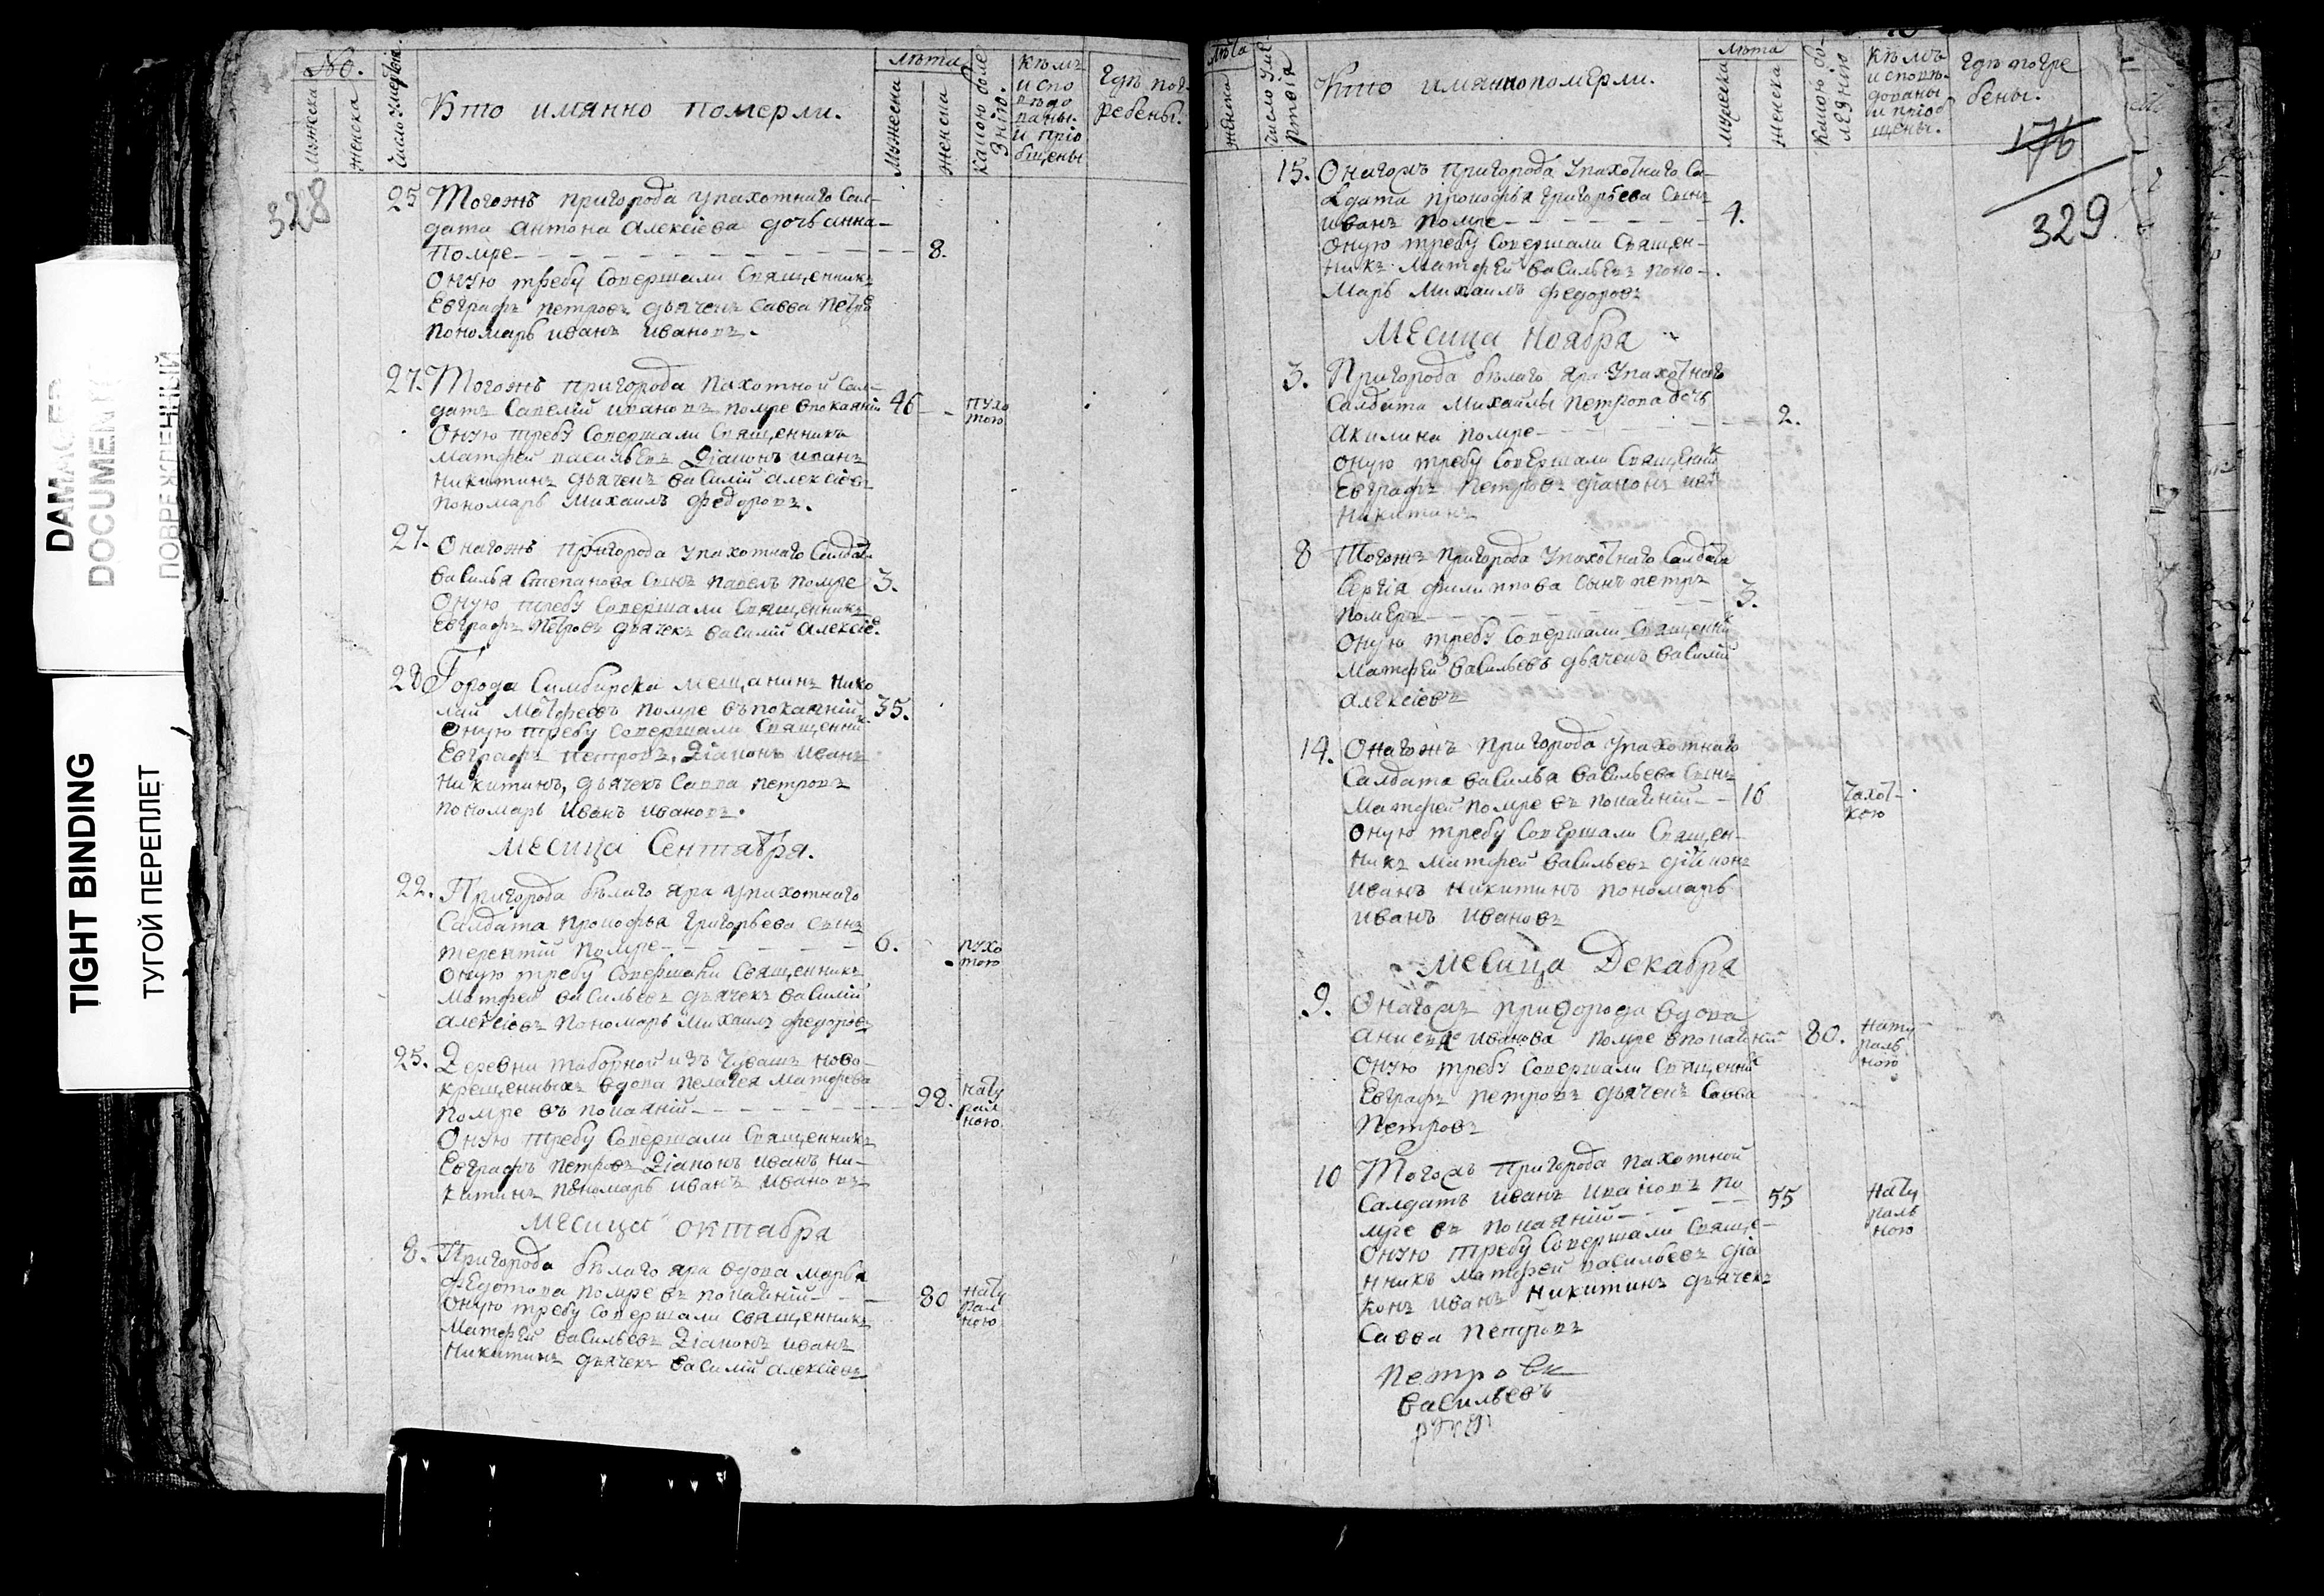 DAMAGED
DOCUMENT
ПОВРЕЖДЕННЫЙ
TIGHT BINDING
ТУГОЙ ПЕРЕПЛЕТ
328
No.
Мужеска
женска
Число Умертвія
Кто имянно померли.
лѣта
Мужеска
женска
какою боле
знію.
кѣмъ
и спо
вѣдо
ваны.
и пріо
бщены
Гдѣ пог
ребены.
25 Тогожъ пригорода Упахотнаго Сал-
дата Антона Алексіева дочь анна
Помре 8.
Оную требу Совершали Священникъ
Евграфъ петровъ дьячекъ Савва Петро
пономарь иванъ ивановъ.
27. Тогожъ пригорода Пахотной Сал-
датъ Савелій ивановъ помре впокаяніи 46 пухо
тою
Оную требу Совершали Священникъ
матфей васильевъ Діаконъ иванъ
никитинъ дьячекъ василій алексіевъ
пономарь Михаилъ федоровъ.
27. Онагожъ пригорода Упахотнаго Салда
василья Степанова Сынъ павелъ помре 3.
Оную требу Совершали Священникъ
Евграфъ Петровъ дьячекъ василий алексіе.
28 Города Симбирска мещанинъ Нико
лай Матфеевъ помре въпокаяніи 35.
Оную требу Совершали Священни
Евграфъ петровъ, Діаконъ иванъ
никитинъ, дьячекъ Савва петровъ
пономарь иванъ ивановъ.
Месица Сентября.
22. Пригорода бѣлаго яра Упахотнаго
Салдата прокофья Григорьева Сынъ
терентій помре 6. пухо
тою
Оную требу Совершали Священникъ
матфей васильевъ дьячекъ василій
алексіевъ пономарь Михаилъ федоровъ
25. Деревни таборной изъ Чувашъ ново-
крещенныхъ вдова пелагея матфева
помре въ покаяніи 98. Нату
рал
ною
Оную требу Совершали Священникъ
Евграфъ петровъ Діаконъ иванъ ни-
китинъ пономарь иванъ ивановъ
месица октября
8. Пригорода бѣлаго яра вдова марфа
федотова помре въ покаяніи 80 Нату
рал
ною
Оную требу Совершали священникъ
матфей васильевъ Діаконъ иванъ
Никитинъ дьячекъ василій алексіевъ
лѣта
женска
Число Уме
ртвія
Кто имянно померли.
лѣта
мужеска
женска
какою бо-
лезнію
кѣмъ
и спов-
дованы
и пріоб
щены.
Гдѣ погре
бены.
176
329
15. Онагожъ пригорода Упахотнаго Са-
лдата прокофья Григорьева Сынъ
иванъ помре 4.
Оную требу Совершали Священ-
никъ матфей васильевъ поно-
марь Михаилъ федоровъ
Месица Ноября
3. Пригорода бѣлаго яра Упахотнаго
Салдата Михайлы петрова дочь
акилина помре 2.
оную требу Совершали Священни
Евграфъ петровъ діаконъ ива
никитинъ
8 Тогожъ пригорода Упахотнаго Салдата
Сергія филиппова Сынъ петръ
померъ 3.
Оную требу Совершали Священни
матфей васильевъ дьячекъ василій
алексіевъ
14. Онагожъ пригорода Упахотнаго
Салдата василья васильева Сынъ
матфей помре въ покаяніи 16 Чахот-
кою
Оную требу Совершали Священ-
никъ матфей васильевъ діаконъ
иванъ никитинъ пономарь
иванъ ивановъ
Месица Декабря
9. Онагожъ пригорода вдова
иванова помре впокаяніи 80. Нату
раль
ною
Оную требу Совершали Священни
Евграфъ петровъ дьячекъ Савва
Петровъ
10 Тогожъ пригорода пахотной
Салдатъ иванъ ивановъ по
мре въ покаяніи 55 Нату
раль
ною
Оную требу Совершали Свяще-
нникъ матфей васильевъ діа
конъ иванъ никитинъ дьячекъ
Савва петровъ
Петровъ
васильевъ